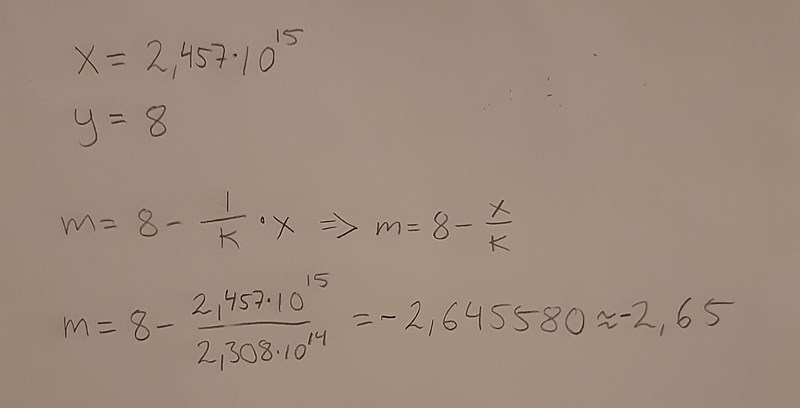 x = 2,457·10^15
y = 8
m = 8 - 1/K · x => m = 8 - x/K
m = 8 - 2,457·10^15 / 2,308·10^14 = -2,645580 ≈ -2,65